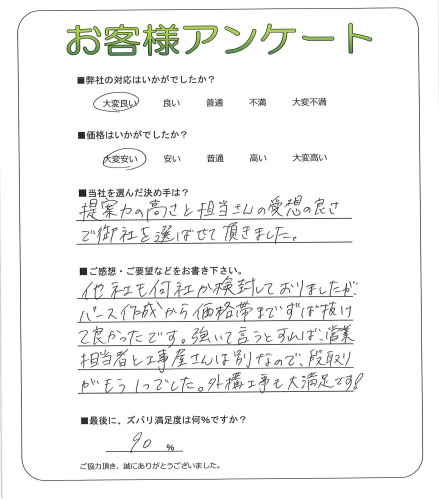 お客様アンケート
■弊社の対応はいかがでしたか?
大変良い 良い 普通 不満 大変不満
■価格はいかがでしたか?
大変安い 安い 普通 高い 大変高い
■当社を選んだ決め手は?
提案力の高さと担当さんの愛想の良さ
で御社を選ばせて頂きました。
■ご感想・ご要望などをお書き下さい。
他社も何社か検討しておりましたが、
パース作成から価格帯まですば抜け
て良かったです。強いて言うとすれば、営業
担当者と工事屋さんは別なので、段取り
がもう1つでした。外構工事も大満足です!
■最後に、ズバリ満足度は何%ですか?
90 %
ご協力頂き、誠にありがとうございました。